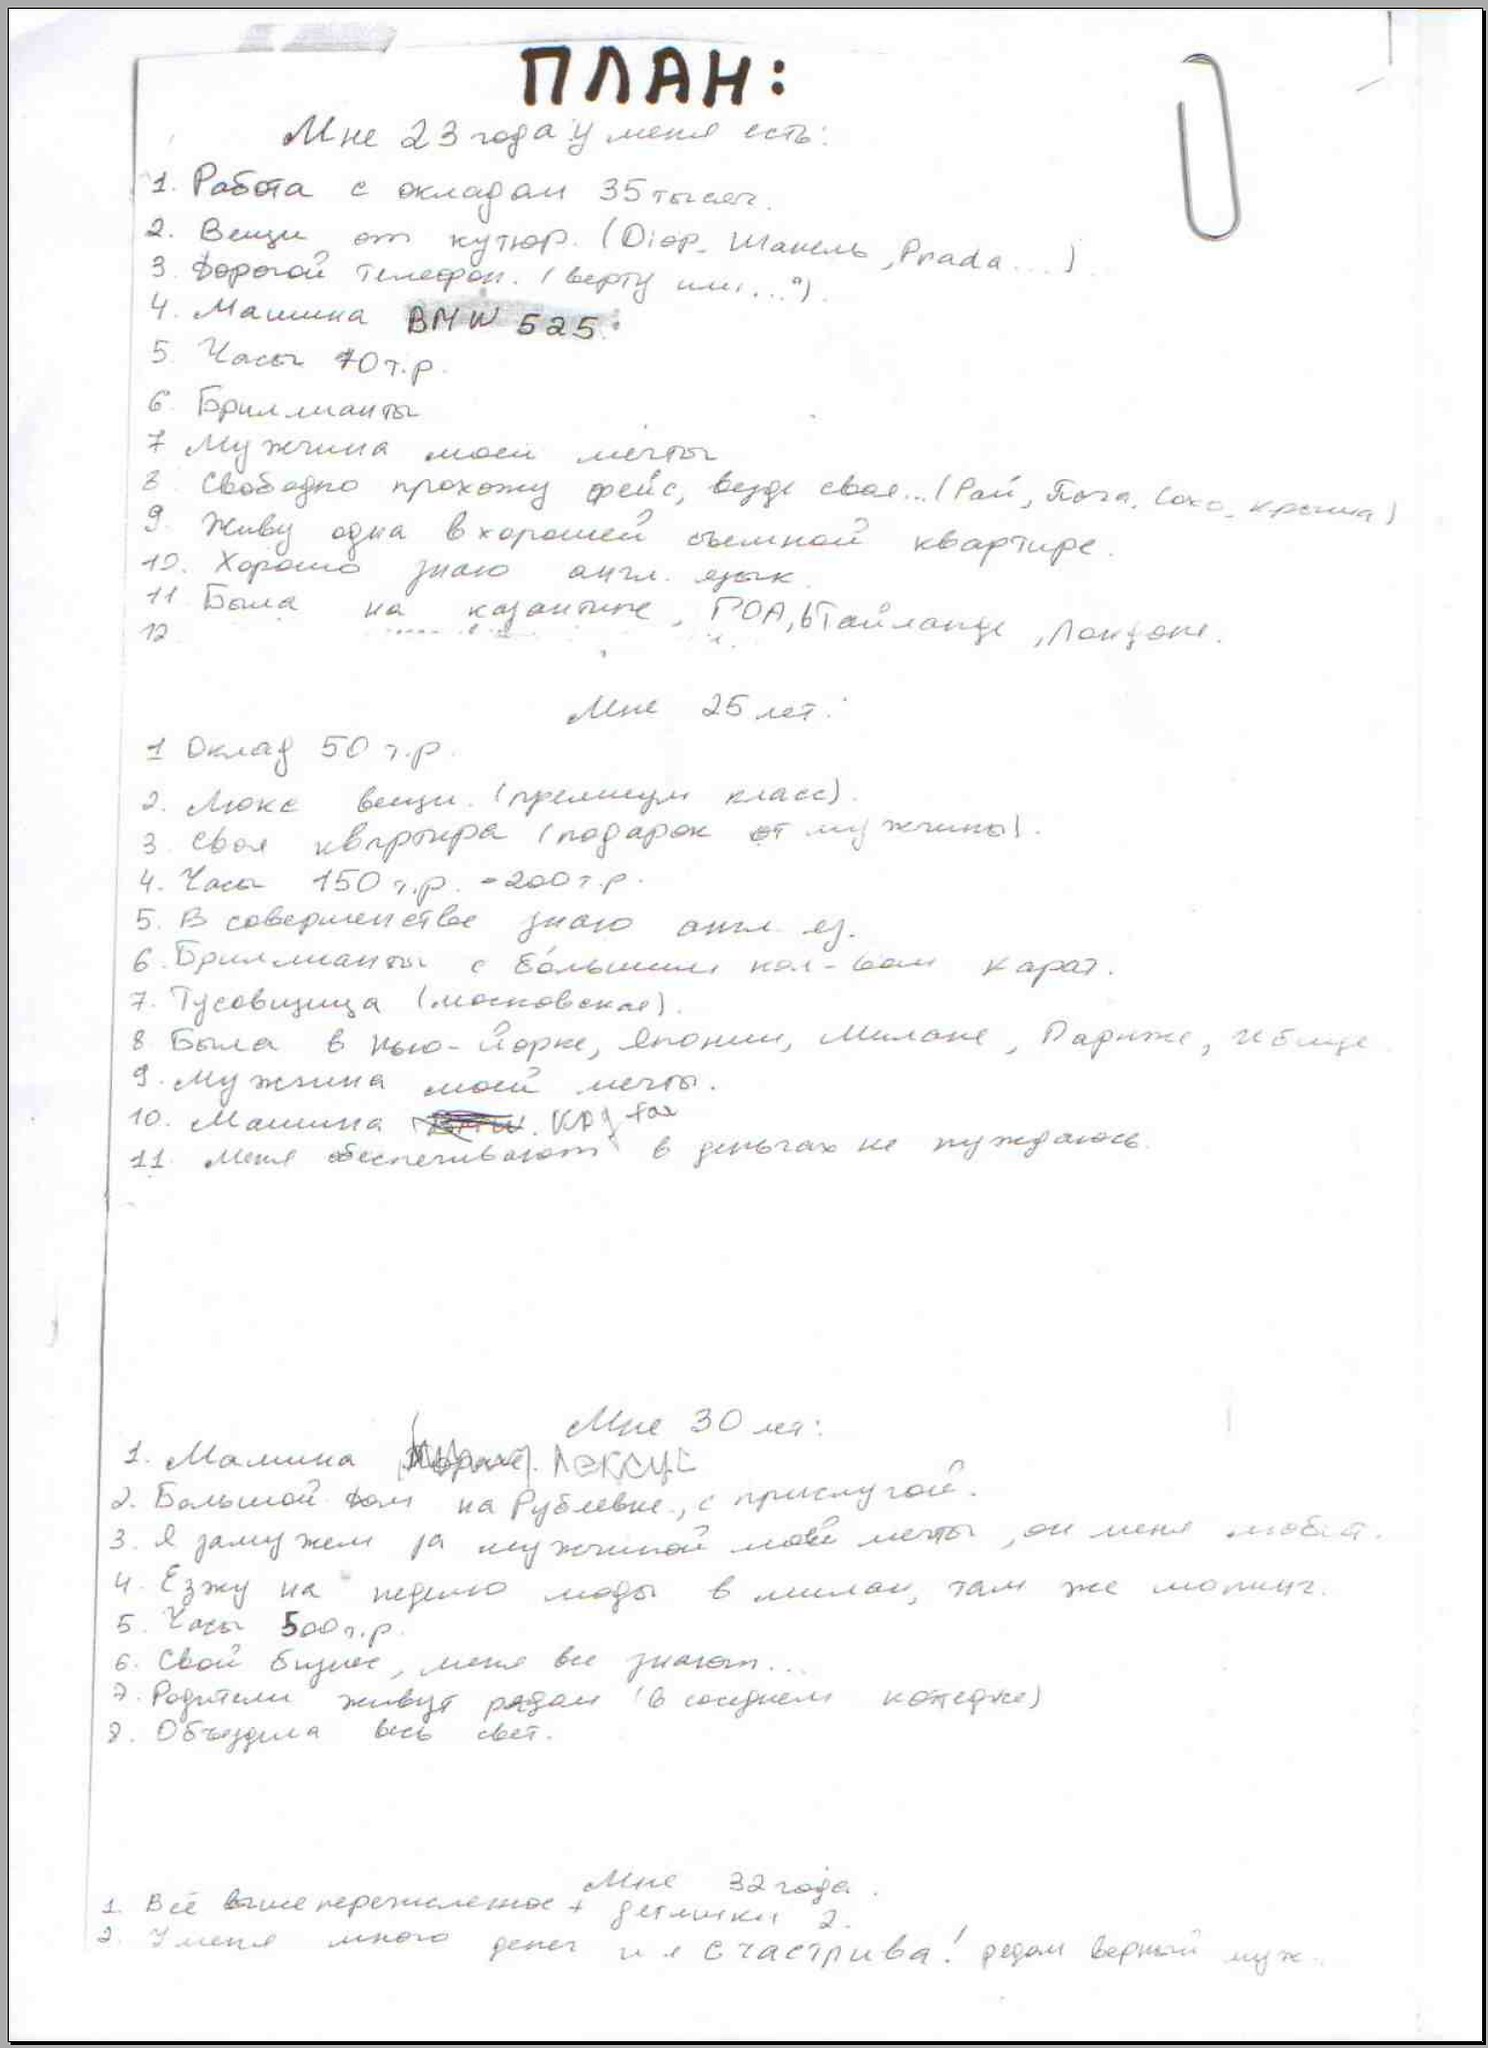 ПЛАН:
Мне 23 года у меня есть:
1. Работа с окладом 35 тысяч.
2. Вещи от кутюр. (Diор, Шанель, Prada...)
3. Дорогой телефон. (верту или...").
4. Машина BMW 525.
5. Часы 70 т.р.
6. Бриллианты
7 Мужчина моей мечты
8. Свободно прохожу фейс, везде своя... (Рай, Поча, Сохо, крыша)
9. Живу одна в хорошей съемной квартире.
10. Хорошо знаю англ. язык.
11 Была на казантипе, ГОА, в Тайланде, Лондоне.
12
Мне 25 лет:
1 Оклад 50 т.р.
2. Люкс вещи. (премиум класс).
3. своя квартира (подарок от мужчины).
4. Часы 150 т.р. - 200 т.р.
5. В совершенстве знаю англ. яз.
6. Бриллианты с большим кол-вом карат.
7. Тусовщица (московская).
8 Была в Нью-Йорке, Японии, Милане, Париже, Ибице.
9. Мужчина моей мечты.
10. Машина BMW.
11. Меня обеспечивают в деньгах не нуждаюсь.
Мне 30 лет:
1. Машина Лексус
2. Большой дом на Рублевке, с прислугой.
3. Я замужем за мужчиной моей мечты, он меня любит.
4. Езжу на неделю моды в милан, там же шопинг.
5. Часы 500 т.р.
6. Свой бизнес, меня все знают...
7. Родители живут рядом (в соседнем котедже)
8. Объездила весь свет.
Мне 32 года.
1. Всё вышеперечисленое + детишки 2.
2. У меня много денег и я счастлива! рядом верный муж..